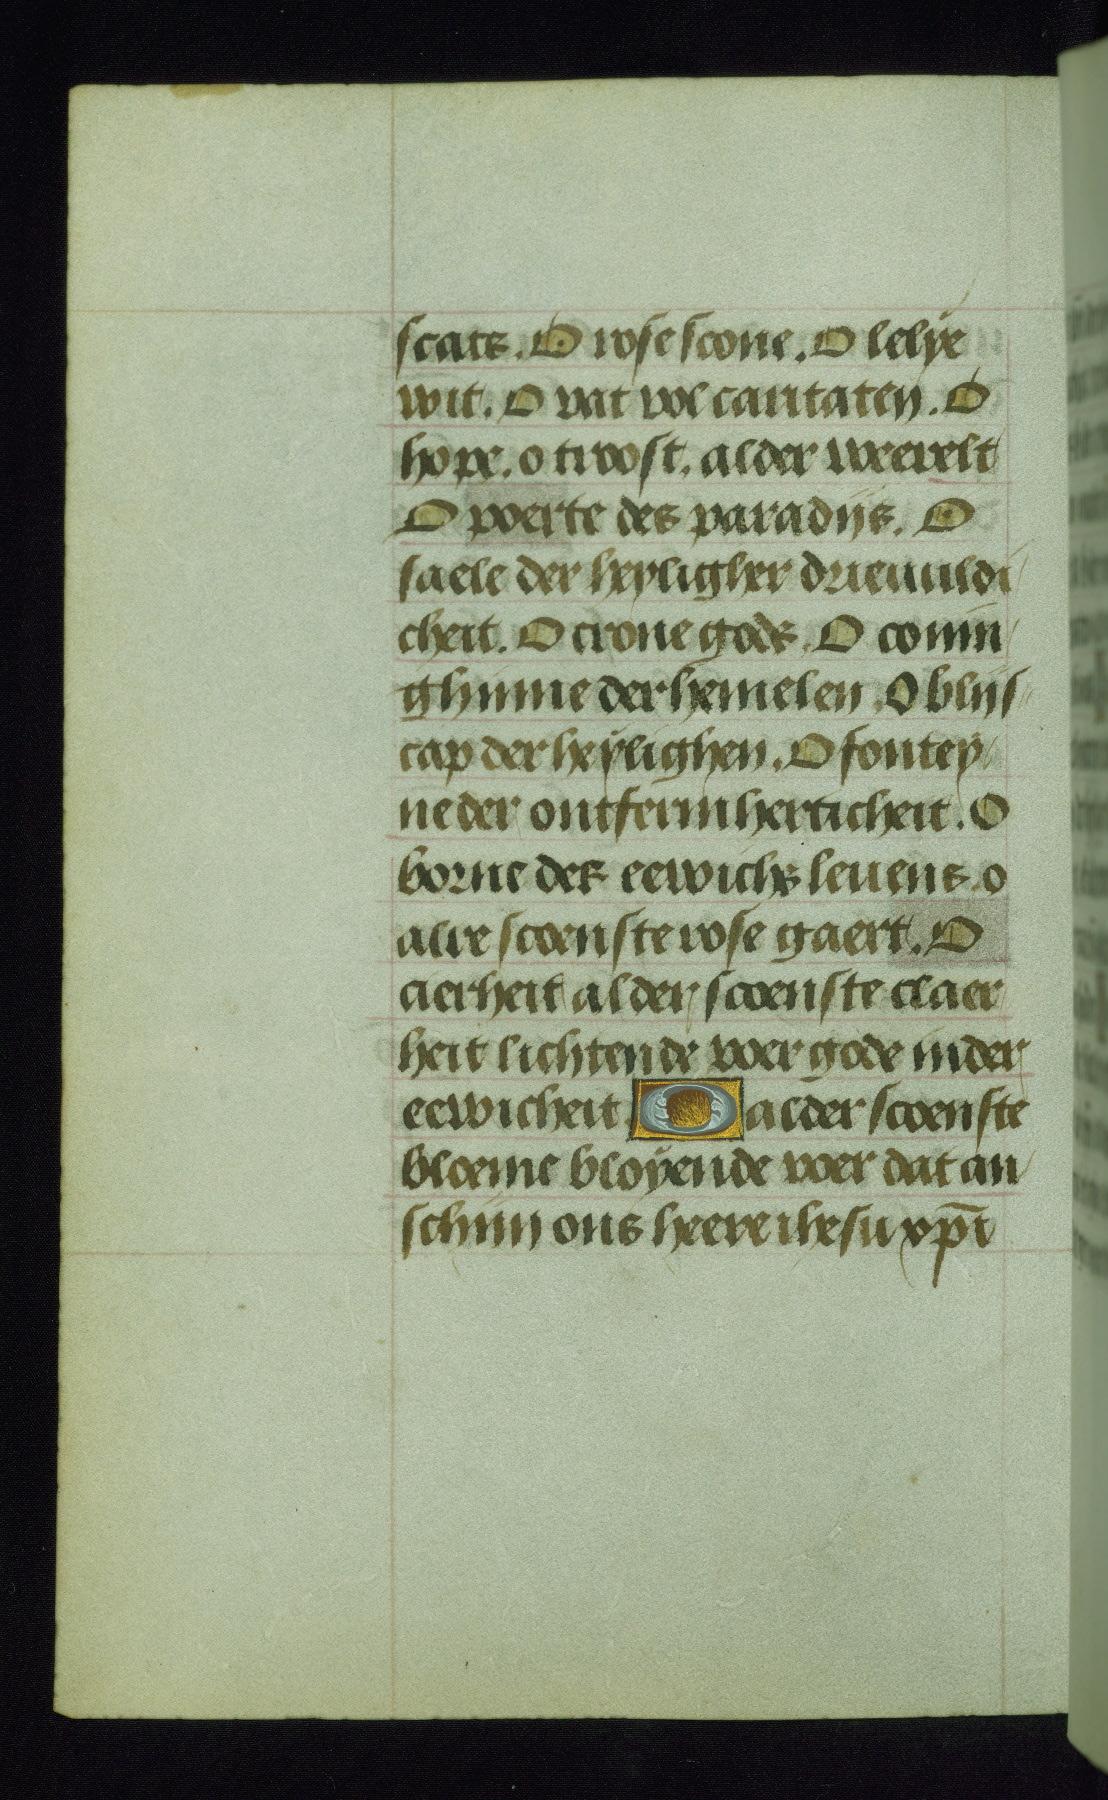 scats. O rose scone. O lelye
wit. O vat vol caritaten. O
hope. o troost. alder weerelt
O poerte des paradijs. O
saele der heyligher drieuuldi
cheit. O crone gods. O conin
ghinne der hemelen. O blijs
cap der heylighen. O fontey
ne der ontfermherticheit. O
borne des eewichs leuens. o
alre scoenste rose gaert. O
cierheit alder scoenste claer
heit lichtende voer gode inder
eewicheit. O alder scoenste
bloeme bloyende voer dat an
schijn ons heere ihesu xp̄i